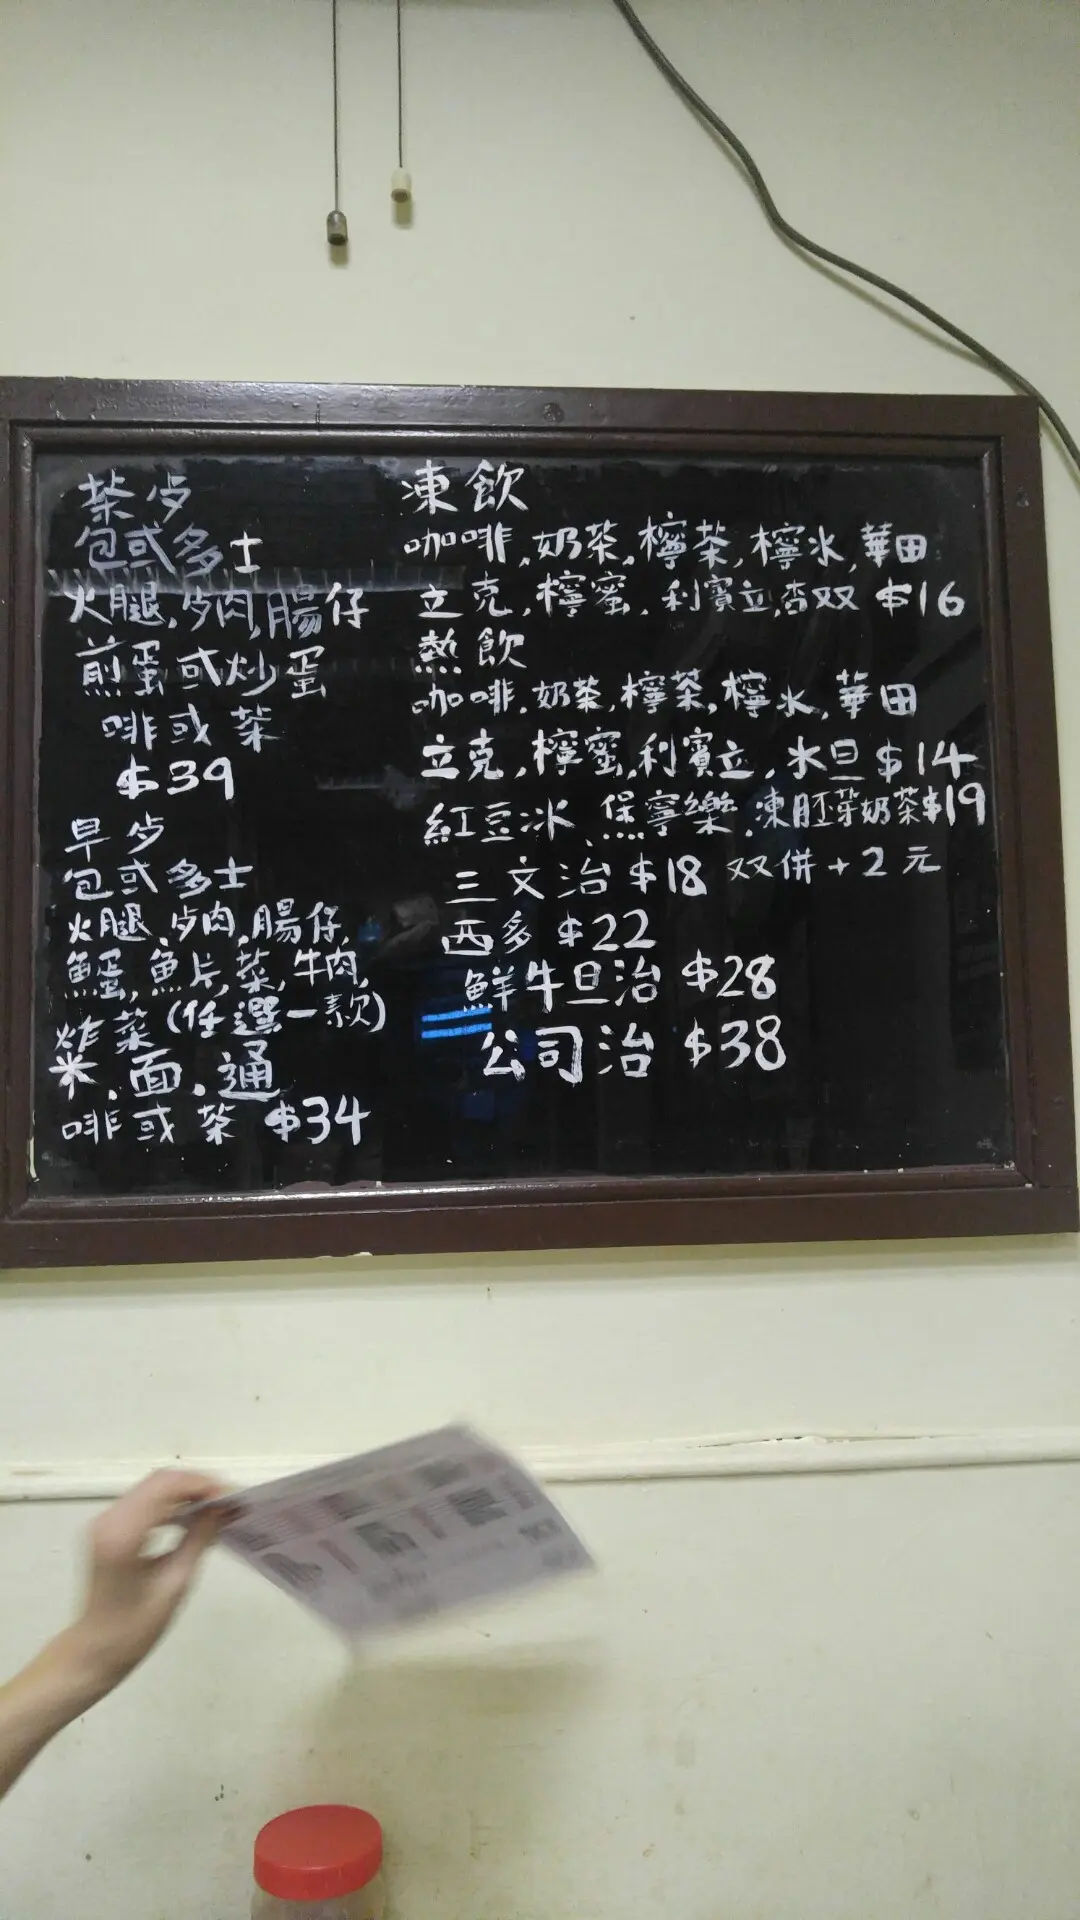 茶歺
包或多士
火腿,歺肉,腸仔
煎蛋或炒蛋
啡或茶
$39
早歺
包或多士
火腿,歺肉,腸仔,
魚蛋,魚片,菜,牛肉,
炸菜(任選一款)
米,面,通
啡或茶 $34
凍飲
咖啡,奶茶,檸茶,檸水,華田
立克,檸蜜,利賓立,杏双 $16
熱飲
咖啡,奶茶,檸茶,檸水,華田
立克,檸蜜,利賓立,水旦 $14
紅豆冰、煲寧樂,凍胚芽奶茶$19
三文治 $18 双併+2元
西多 $22
鮮牛旦治 $28
公司治 $38